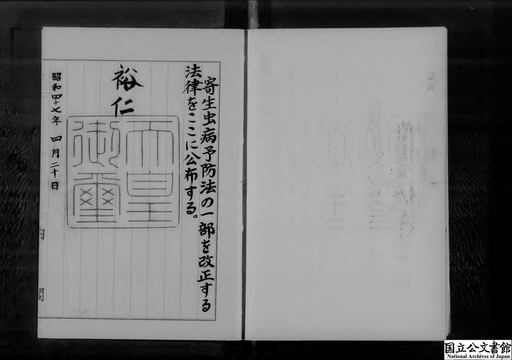 寄生虫病予防法の一部を改正する
法律をここに公布する。
裕仁
天皇
御璽
昭和四十七年 四月二十日
国立公文書館
National Archives of Japan